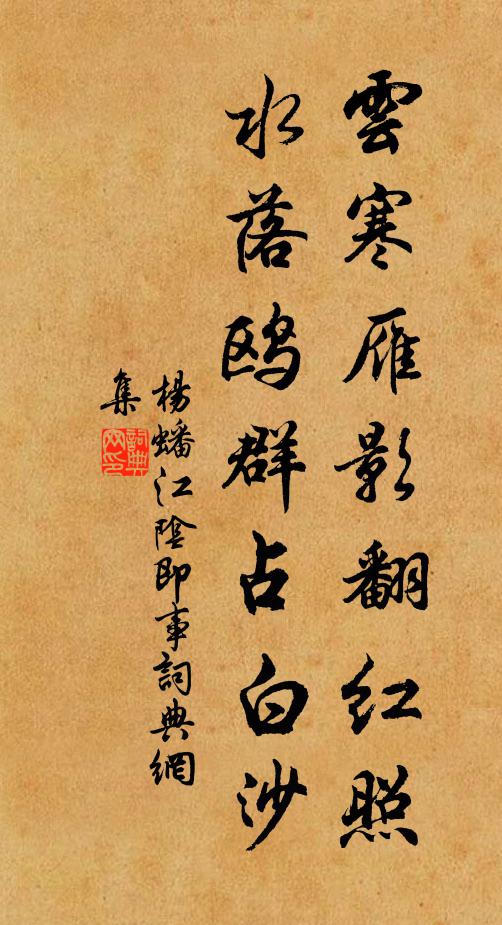 雲寒雁影翻紅照
水落鸥群占白沙
楊蟠江陰即事詞典網
集
詞典
网印